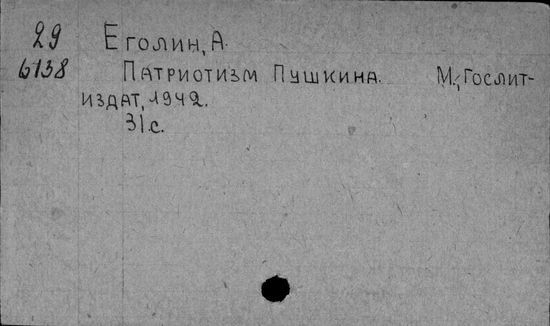 29 Еголин, А.
6138 Патриотизм Пушкина. М., Гослит-
издат, 1942.
31 с.